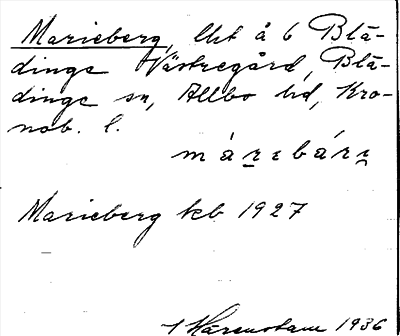 Marieberg, lht å 6 Blä-
dinge Västregård, Blä-
dinge sn, Allbo hd, Kro-
nob. l.
márɛbárɛ
Marieberg kb 1927
1936